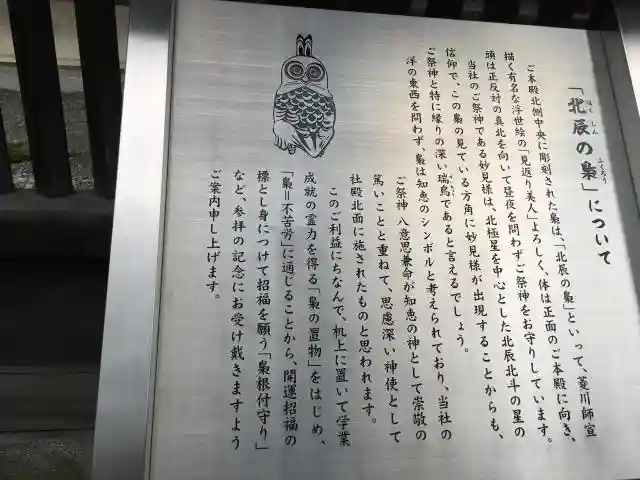 「北辰の梟」について
ほくしん ふくろう
ご本殿北側中央に彫刻された梟は、「北辰の梟」といって、菱川師宣
描く有名な浮世絵の「見返り美人」よろしく、体は正面のご本殿に向き、
頭は正反対の真北を向いて昼夜を問わずご祭神をお守りしています。
当社のご祭神である妙見様は、北極星を中心とした北辰北斗の星の
信仰で、この梟の見ている方角に妙見様が出現することからも、
ご祭神と特に縁りの深い瑞鳥であると言えるでしょう。
洋の東西を問わず、梟は知恵のシンボルと考えられており、当社の
ご祭神 八意思兼命が知恵の神として崇敬の
篤いことと重ねて、思慮深い神使として
社殿北面に施されたものと思われます。
このご利益にちなんで、机上に置いて学業
成就の霊力を得る「梟の置物」をはじめ、
「梟＝不苦労」に通じることから、開運招福の
標とし身につけて招福を願う「梟根付守り」
など、参拝の記念にお受け戴きますよう
ご案内申し上げます。